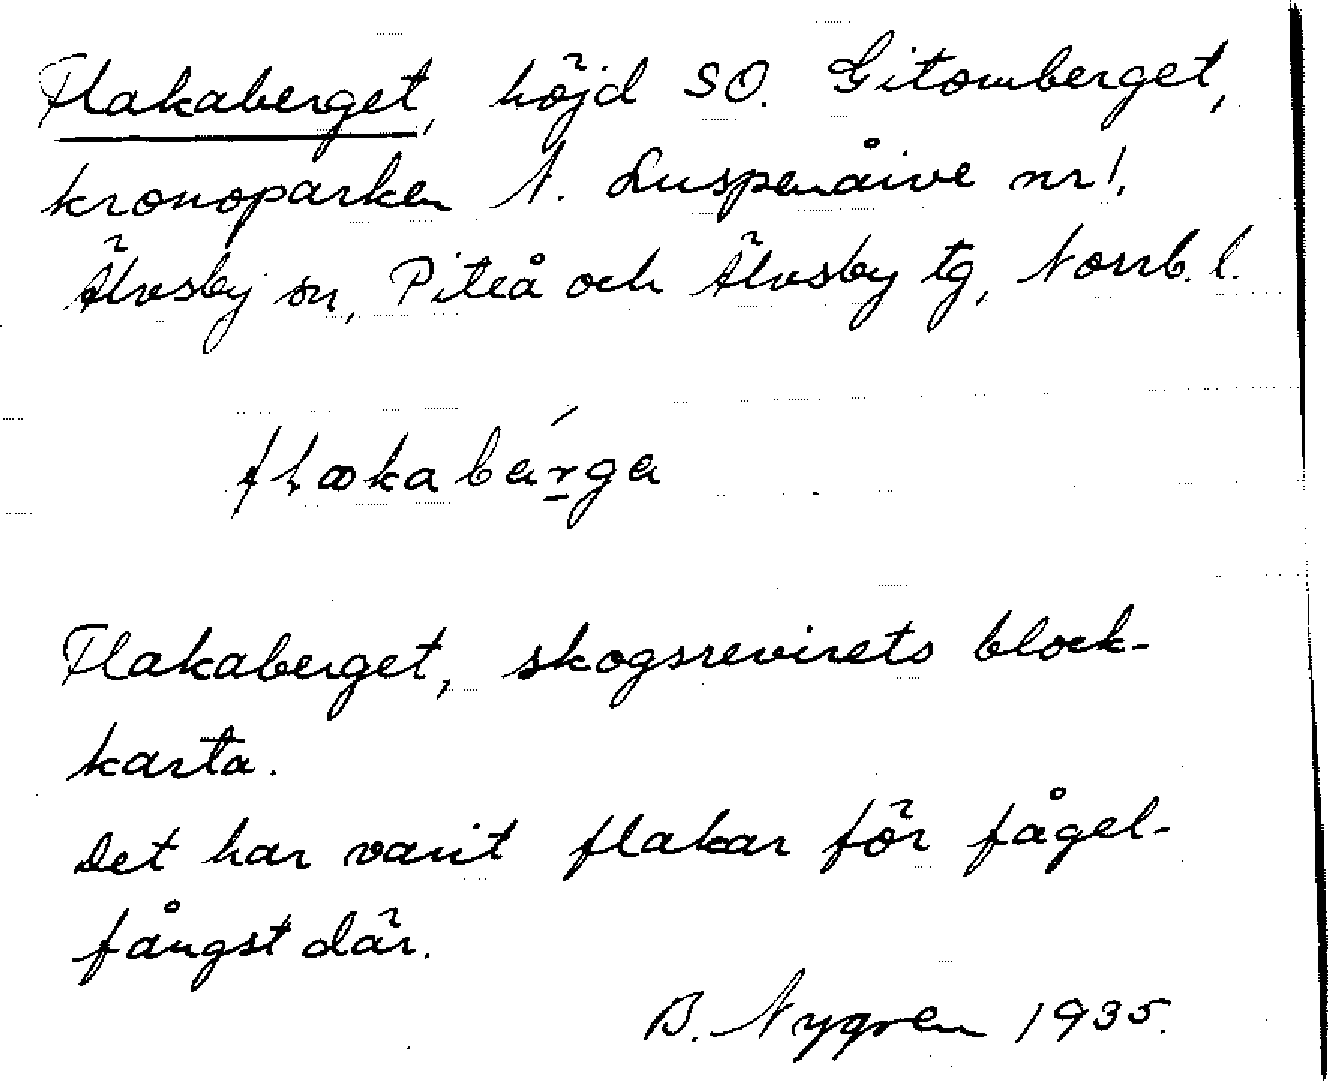 Flakaberget, höjd SO. Gitomberget,
kronoparken N. Luspenåive nr 1,
Älvsby sn, Piteå och Älvsby tg, Norrb. l.
flakabærga
Flakaberget, skogsrevirets block-
karta.
Det har varit flakar för fågel-
fångst där.
B. Nygren 1935.